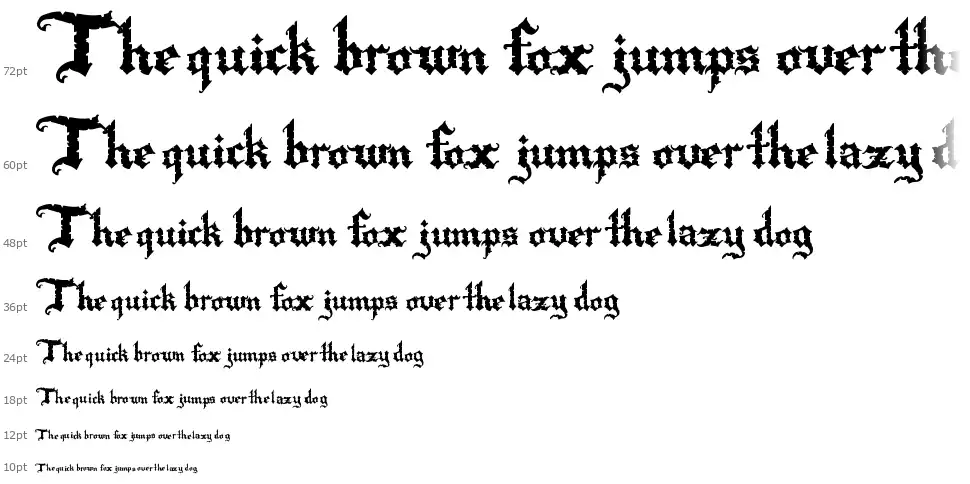 72pt The quick brown fox jumps over the
60pt The quick brown fox jumps over the lazy d
48pt The quick brown fox jumps over the lazy dog
36pt The quick brown fox jumps over the lazy dog
24pt The quick brown fox jumps over the lazy dog
18pt The quick brown fox jumps over the lazy dog
12pt The quick brown fox jumps over the lazy dog
10pt The quick brown fox jumps over the lazy dog